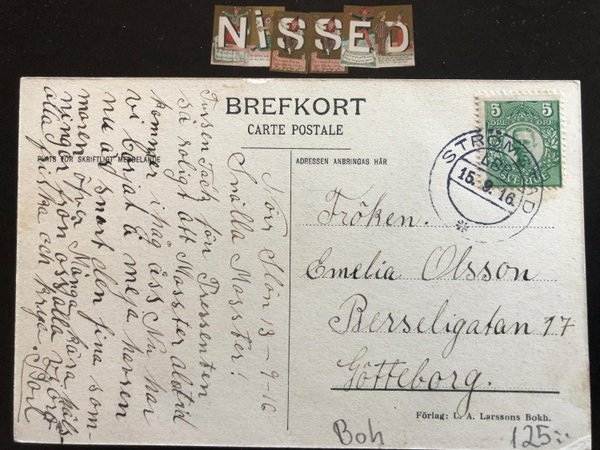 NiSSED
BREFKORT
CARTE POSTALE
PLATS FÖR SKRIFTLIGT MEDDELANDE
ADRESSEN ANBRINGAS HÄR
5 5
ÖRE ÖRE
SVERIGE
STRÖMSTAD
LBR
15.9.16
Norr Hön 13-9-16
Snälla Masster!
Tussen Tack för Pressenten
så roligt att Masster alltid
kommer i håg åss Nu har
vi börjat å meja hansen
nu är snart den fina som-
maren över Många kära häls-
ningar från oss alla
alla friska och krya.
Fröken.
Emelia Olsson
Berseligatan 17
Götteborg.
Förlag: L. A. Larssons Bokh.
Boh
125:-